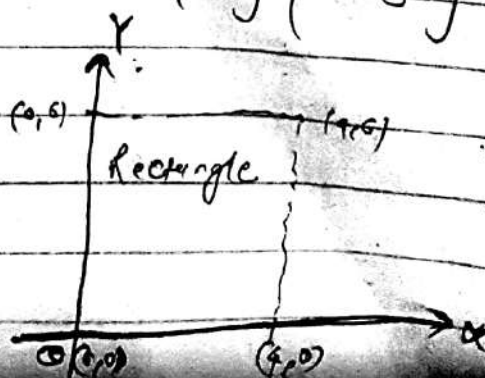 Y
(0,6) (4,6)
Rectangle
O (0,0) (4,0) x